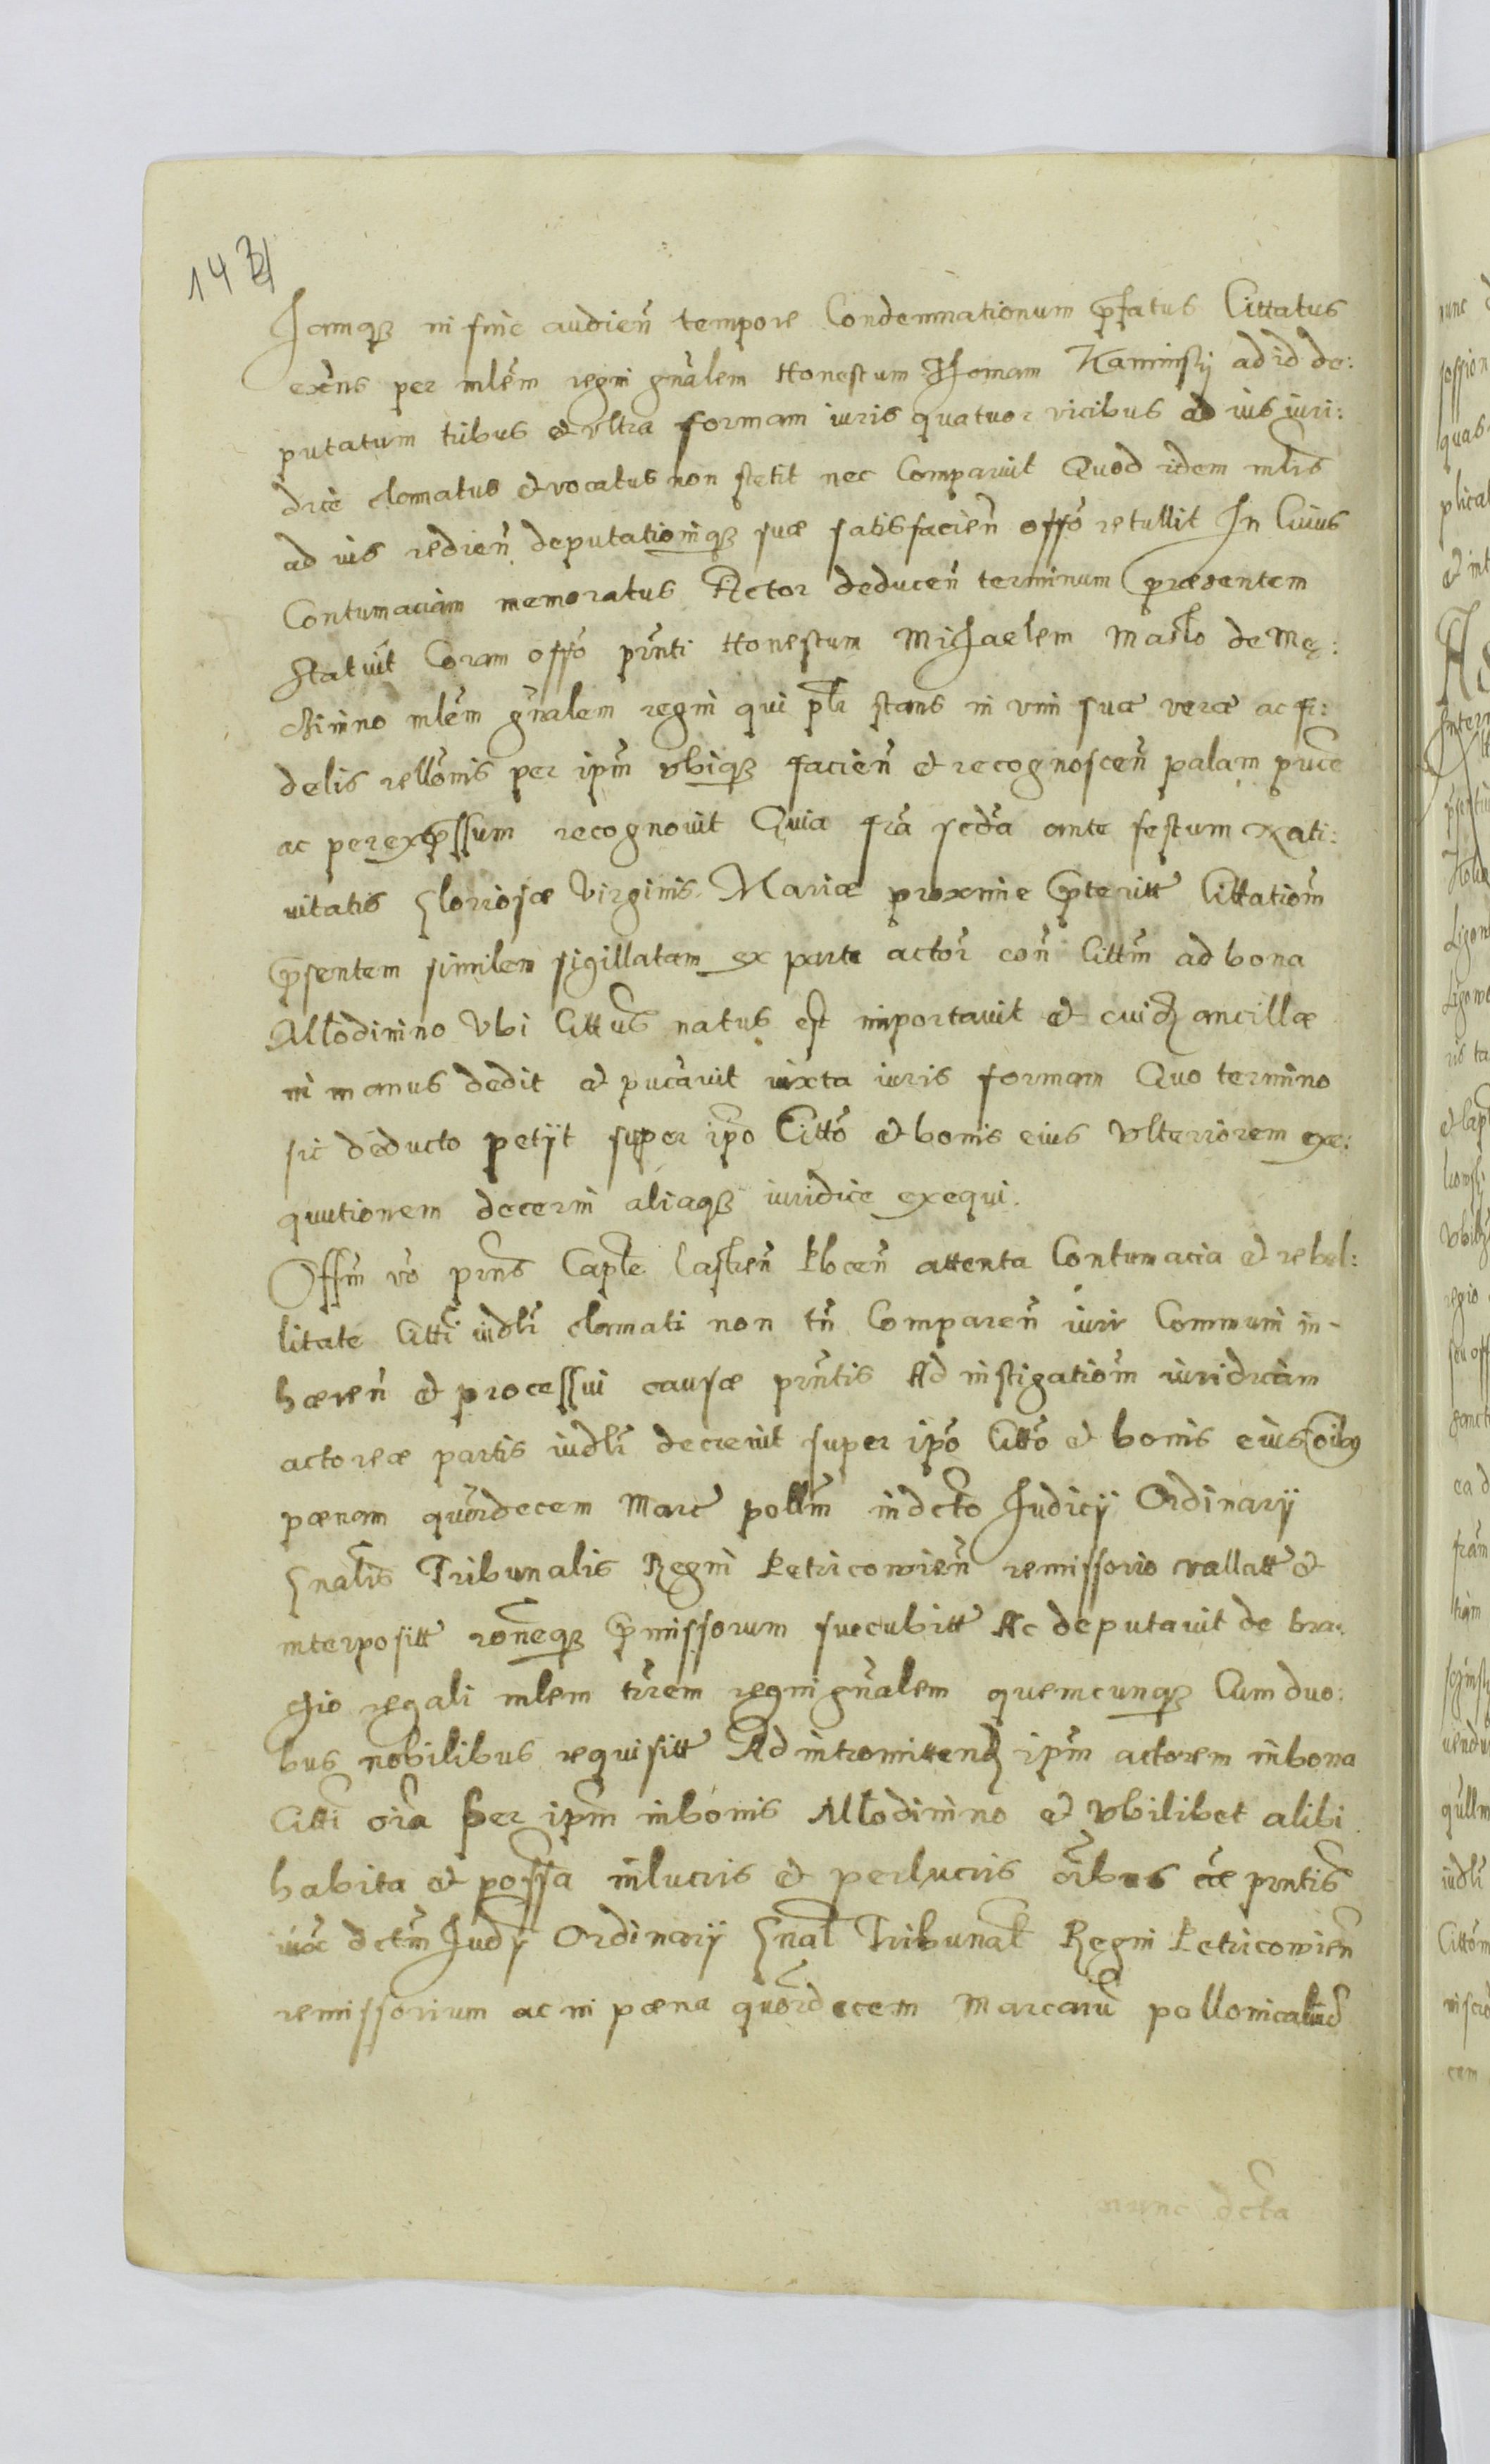 143
Iamqz in fine audien̄ tempore Condemnationum p̄fatus Cittatus
exēns per mlēm regni gnālem Honestum Thomam Kaminsky ad id de:
putatum tribus et vltra formam iuris quatuor vicibus ad ius iuri:
dice clamatus et vocatus non stetit nec Comparuit Quod idem mlris
ad ius redien̄ deputationiqz suæ satisfacien̄ offō retullit In Cuius
Contumaciam memoratus Actor deducen̄ terminum præsentem
statuit Coram offō prn̄ti Honestum Michaelem Masło de Mę:
chinino mlēm gnālem regni qui pl̄r stans in vim suæ veræ ac fi:
delis rellōnis per ipm̄ vbiqz facien̄ et recognoscen̄ palam puce
ac per exp̄ssum recognouit Quia fr̄a scdā ante festum Nati:
uitatis Gloriosæ Virginis Mariæ proxime p̄teritt Cittatiōm
p̄sentem similem sigillatam ex parte actor̄ con̄ Cittm̄ ad bona
Młodinino Vbi Cittus natus est importauit et cuidz ancillæ
in manus dedit et pucāuit iuxta iuris formam Quo termino
sic deducto petijt super ipō Cittō et bonis eius Vlteriorem exe:
quutionem decerni aliaqz iuridice exequi.
Offm̄ vō prns̄ Capl̄e Castren̄ Plocen̄ attenta Contumacia et rebel:
litate Citti iudlr̄ clamati non tn̄ Comparen̄ iuri Communi in-
hæren̄ et processui causæ prn̄tis Ad instigatiōm iuridicam
actoreæ partis iudlr̄ decreuit super ipō Cittō et bonis eius oibus
pænam quōrdecem Marc pollm̄ in dcto Iudicij Ordinarij
Gnalis Tribunalis Regni Petricowien̄ remissorio vallatt et
interpositt rōneqz p̄missorum succubitt Ac deputauit de bra:
chio regali mlem tr̄rem regni gnālem quemcunqz Cum duo:
bus nobilibus requisitt Ad intromittendz ipm̄ actorem in bona
Citti oīa per ipm̄ in bonis Młodinino et vbilibet alibi
habita et possa in lucris et perlucris ōibus cæ prntis
iuxē dctm̄ Iudij Ordinarij Gnal̄ Tribunal̄ Regni Petricowien̄
remissorium ac in pæna quōrdecem Marcarū pollonicaliū
nunc dcta